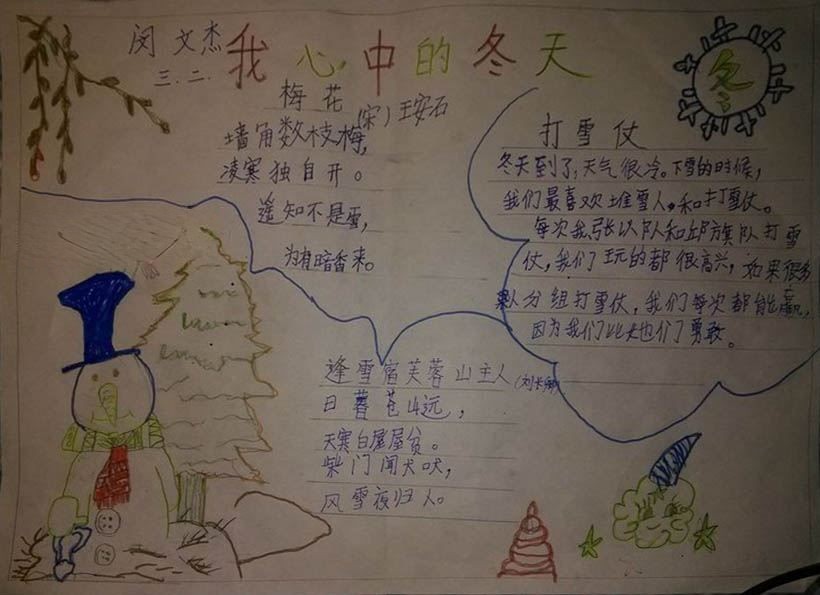 闵文杰
三.二.
我心中的冬天
冬
梅花
(宋)王安石
墙角数枝梅,
凌寒独自开。
遥知不是雪,
为有暗香来。
打雪仗
冬天到了,天气很冷。下雪的时候,
我们最喜欢堆雪人,和打雪仗。
每次我张以队和邱旗队打雪
仗,我们玩的都很高兴,如果很多
队分组打雪仗,我们每次都能赢,
因为我们比也们勇敢。
逢雪宿芙蓉山主人(刘长卿)
日暮苍山远,
天寒白屋屋贫。
柴门闻犬吠,
风雪夜归人。